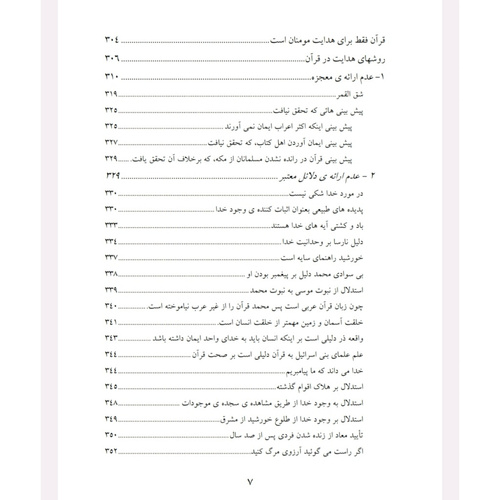 قرآن فقط برای هدایت مومنان است ۳۰۴
روشهای هدایت در قرآن ۳۰۶
۱- عدم ارائه ی معجزه ۳۱۰
شق القمر ۳۱۹
پیش بینی هائی که تحقق نیافت ۳۲۵
پیش بینی اینکه اکثر اعراب ایمان نمی آورند ۳۲۵
پیش بینی ایمان آوردن اهل کتاب، که تحقق نیافت ۳۲۷
پیش بینی قرآن در رانده نشدن مسلمانان از مکه، که برخلاف آن تحقق یافت. ۳۲۹
۲ - عدم ارائه ی دلائل معتبر ۳۲۹
در مورد خدا شکی نیست ۳۳۰
پدیده های طبیعی بعنوان اثبات کننده ی وجود خدا ۳۳۰
باد و کشتی آیه های خدا هستند ۳۳۳
دلیل نارسا بر وحدانیت خدا ۳۳۴
خورشید راهنمای سایه است ۳۳۷
بی سوادی محمد دلیل بر پیغمبر بودن او ۳۳۸
استدلال از نبوت موسی به نبوت محمد ۳۳۹
چون زبان قرآن عربی است پس محمد قرآن را از غیر عرب نیاموخته است. ۳۴۰
خلقت آسمان و زمین مهمتر از خلقت انسان است. ۳۴۱
واقعه ذر دلیلی است بر اینکه انسان باید به خدای واحد ایمان داشته باشد ۳۴۳
علم علمای بنی اسرائیل به قرآن دلیلی است بر صحت قرآن ۳۴۴
خدا می داند که ما پیامبریم ۳۴۴
استدلال بر هلاک اقوام گذشته ۳۴۵
استدلال به وجود خدا از طریق مشاهده ی سجده ی موجودات ۳۴۸
استدلال بر وجود خدا از طلوع خورشید از مشرق ۳۴۹
تأیید معاد از زنده شدن فردی پس از صد سال ۳۵۰
اگر راست می گوئید آرزوی مرگ کنید ۳۵۲
۷